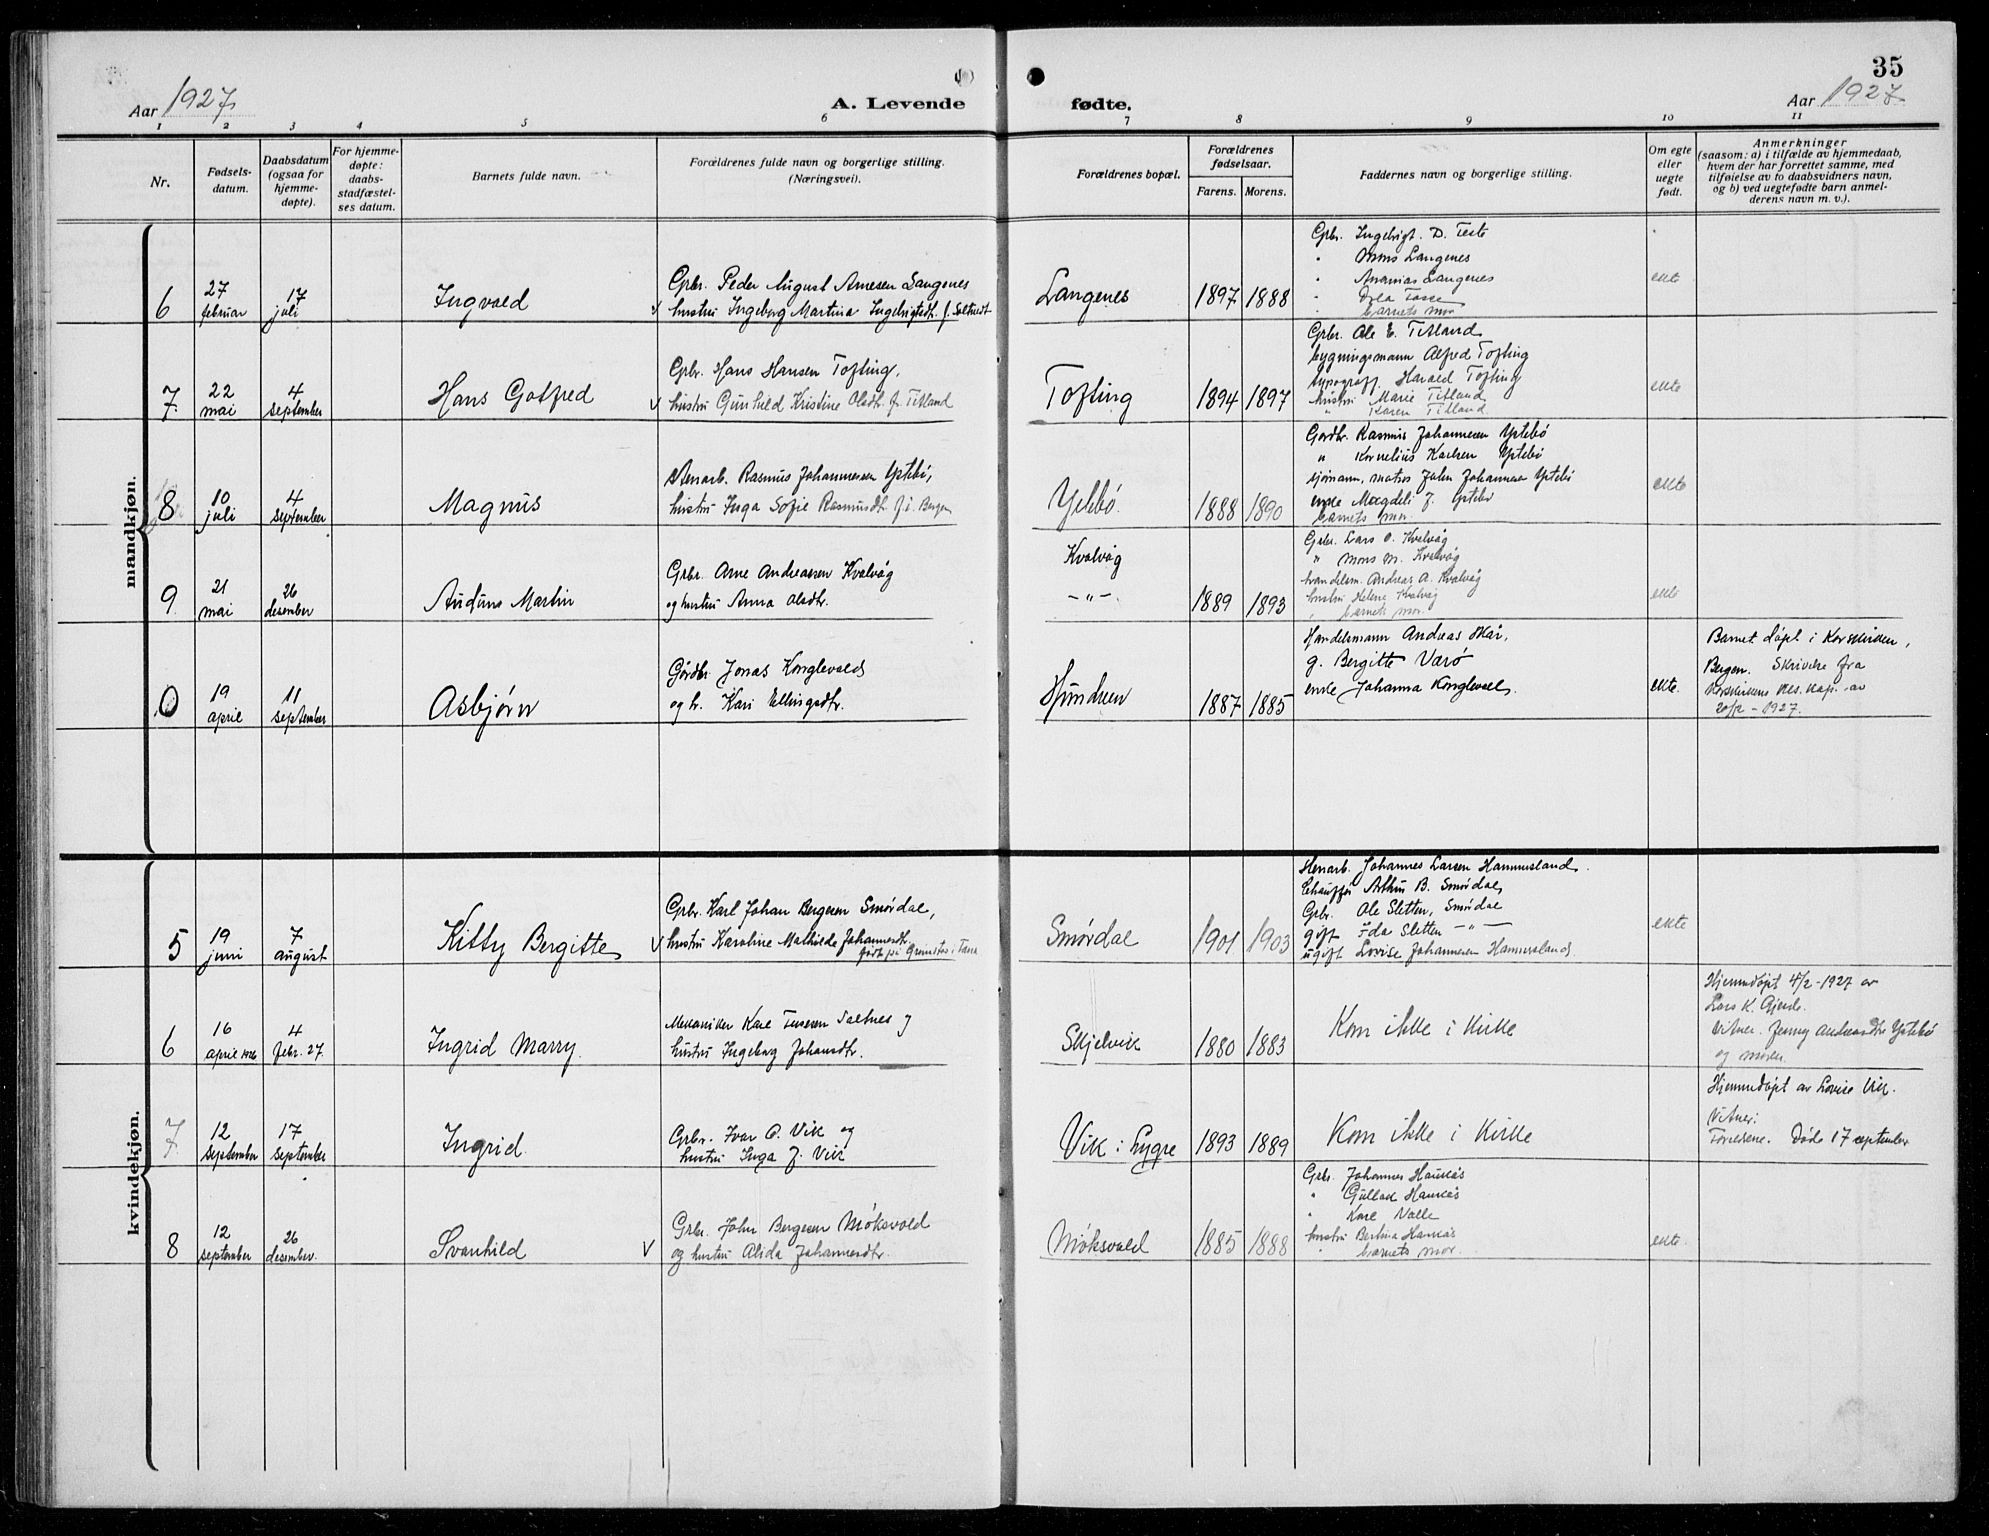 35
Aar 1927
A. Levende
fødte.
Aar 1927
1 2 3 4 5 6 7 8 9 10 11
Nr.
Fødsels-
datum.
Daabsdatum
(ogsaa for
hjemme-
døpte).
For hjemme-
døpte:
daabs-
stadfæstel-
ses datum.
Barnets fulde navn.
Forældrenes fulde navn og borgerlige stilling.
(Næringsvei).
Forældrenes bopæl.
Forældrenes
fødselsaar.
Farens. Morens.
Faddernes navn og borgerlige stilling.
Om egte
eller
uegte
født.
Anmerkninger
(saasom: a) i tilfælde av hjemmedaab,
hvem der har forrettet samme, med
tilføielse av to daabsvidners navn,
og b) ved uegtefødte barn anmel-
derens navn m. v.).
mandkjøn.
6
27
februar
17
juli
Ingvald
Grbr. Peder August Arnesen Langenes
hustru Ingeborg Martina Ingebrigtsdtr. f. Saltvedt
Langenes
1897 1888
Grbr. Ingebrigt. D. Teste
" Mons Langenes
" Ananias Langenes
barnets mor
ekte
7.
22
mai
4
september
Hans Gotfred
Grbr. Hans Hansen Tofting,
hustru Gunhild Kristine Olsdtr. f. Titland
Tofting
1894 1897
Grbr. Ole E. Titland
bygningsmann Alfred Tofting
typograff. Harald Tofting
hustru Marie Titland
" Karen Titland
ekte
8
10
juli
4
september
Magnus
Stenarb. Rasmus Johannesen Ystebø,
hustru Inga Sofie Rasmusdtr. f. i Bergen
Ystebø.
1888 1890
Gardbr. Rasmus Johannesen Ystebø
" Kornelius Karlsen Ystebø
sjømann, matros John Johannesen Ystebø
enke Magdeli J. Ystebø
barnets mor.
ekte
9
21
mai
26
desember
Auduns Martin
Grbr. Arne Andreassen Kvalvåg
og hustru Anna Olsdtr.
Kvalvåg
- " -
1889 1893
Grbr. Lars O. Kvalvåg
" Mons M. Kvalvåg
handelsm. Andreas A. Kvalvåg
hustru Helene Kvalvåg
" barnets mor.
ekte
0
19
april
11
september
Asbjørn
Gårdbr. Jonas Konglevold
og h. Kari Ellingsdtr.
1887 1885
Handelsmann Andreas Skår,
g. Bergitte Værø
enke Johanna Konglevoll.
ekte.
Barnet døpt i Korskirken,
Bergen. Skrivelse fra
Korskirkens res. kap. av
20/12 - 1927.
kvindekjøn.
5
19
juni
7
august
Kitty Bergitte
Grbr. Karl Johan Bergesen Smørdal,
hustru Karoline Mathilde Johannesdtr.
født på Grøndtos i Tana
Smørdal
1901 1903
Stenarb. Johannes Larsen Hammersland.
Chauffør Arthur B. Smørdal
Grbr. Ole Sletten, Smørdal
gift Ida Sletten - " -
ugift Lovise Johannesen Hammersland
ekte
6
16
april 1926
4
febr. 27.
Ingrid Marry.
Mekaniker Karl Iversen Saltnes og
hustru Ingeborg Johansdtr.
Skjelvik
1880 1883
Kom ikke i Kirke
Hjemmedøpt 4/2-1927 av
Lars K. Gjerde.
Vitner. Jenny Andersdtr Ystebø
og moren.
7
12
september
17
september
Ingrid.
Grbr. Ivar O. Vik og
hustru Inga J. Vik
Vik i Lygre
1893 1889
Kom ikke i Kirke
Hjemmedøpt av Lovise Vik.
Vitner:
Foreldrene. Døde 17 september
8
12
september
26
desember.
Svanhild
Grbr. John Bergesen Møksvold
og hustru Alida Johannesdtr.
Møksvold
1885 1888
Grbr. Johannes Haukås
" Gullad Haukås
" Karl Valle
hustru Bertina Haukås
" barnets mor.
ekte.